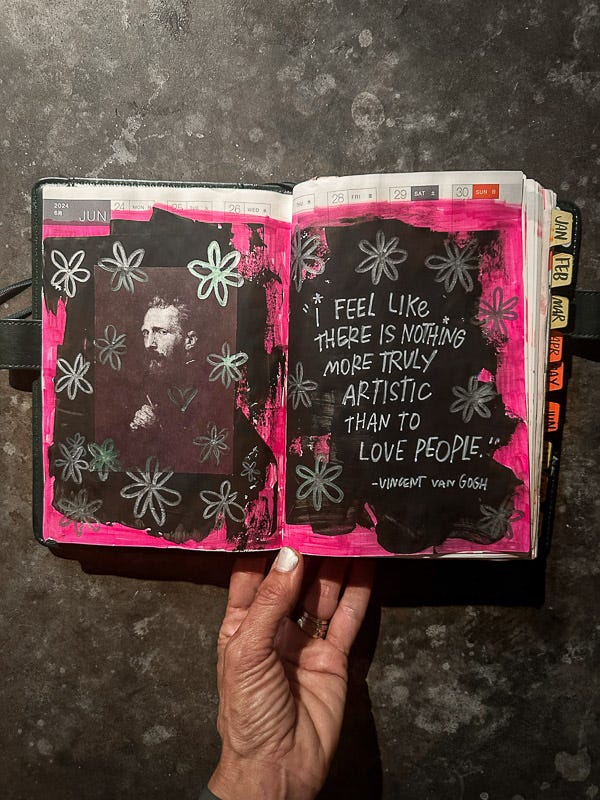 2024
6月
JUN
24 MON
25 TUE
26 WED 水
THU
28 FRI 金
29 SAT 土
30 SUN 日
"I FEEL LIKE
THERE IS NOTHING
MORE TRULY
ARTISTIC
THAN TO
LOVE PEOPLE."
-VINCENT VAN GOGH
JAN
FEB
MAR
APR
MAY
JUN